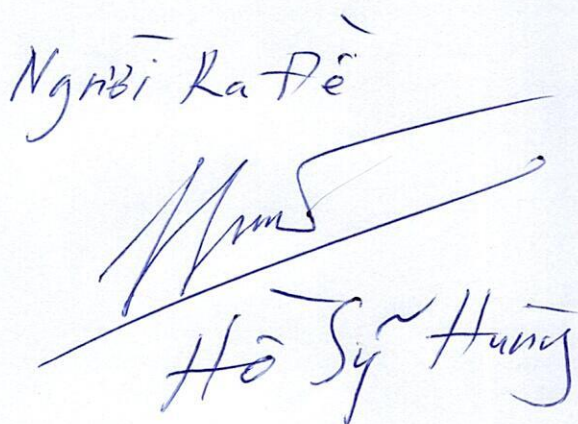 Người Ra Đề
Hồ Sỹ Hùng